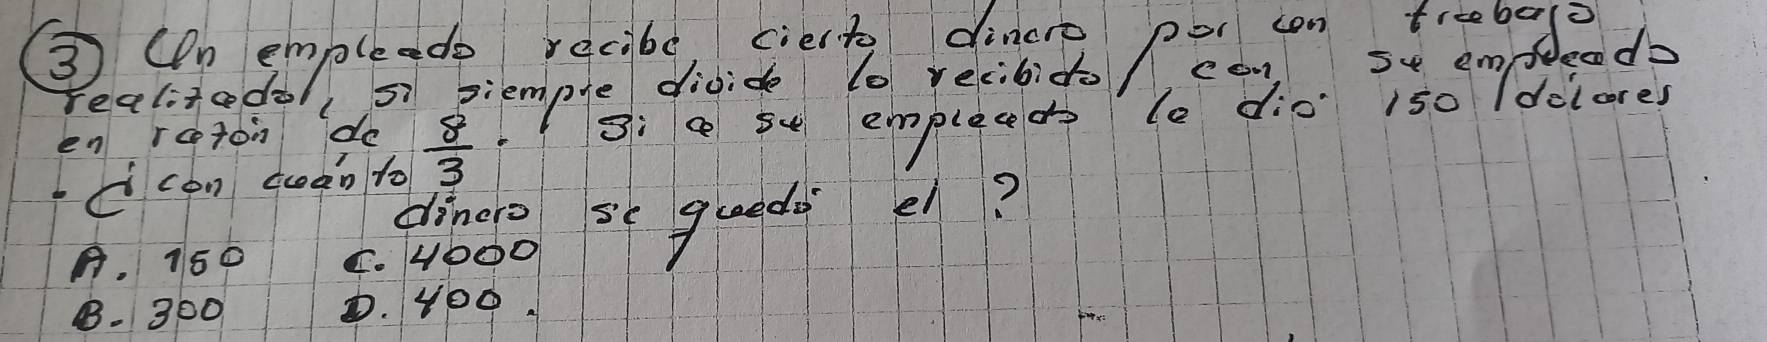 3 Un empleado recibe cierto dinero por con trabajo
realizado, si siempre divide lo recibido con su empleado
en razón de 8/3. Si a su empleado le dio 150 dolares
¿con cuánto
dinero se quedó el?
A. 150 C. 4000
B. 300 D. 400.